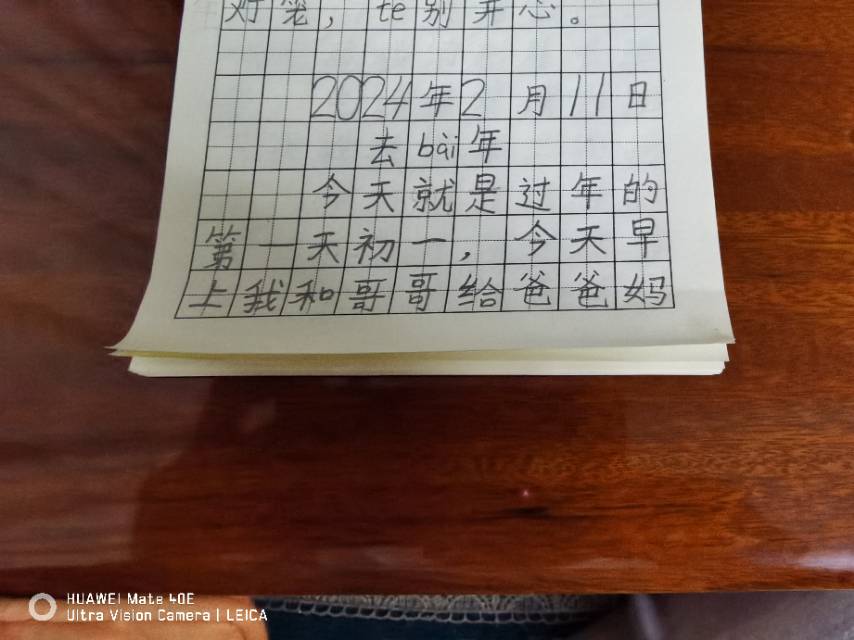 灯笼，te别开心。
2024年2月11日
去bài年
今天就是过年的
第一天初一，今天早
上我和哥哥给爸爸妈
HUAWEI Mate 40E
Ultra Vision Camera | LEICA